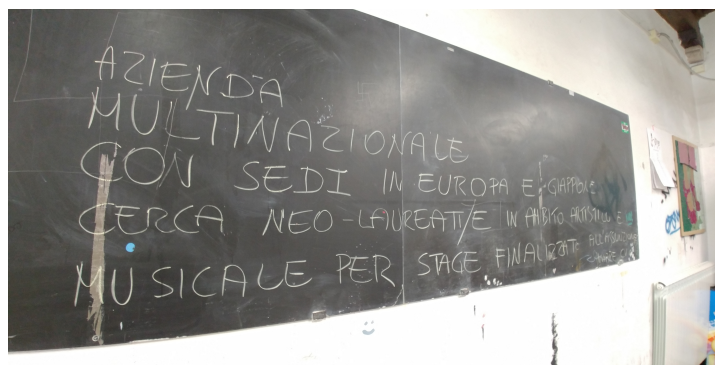 AZIENDA
MULTINAZIONALE
CON SEDI IN EUROPA E GIAPPONE
CERCA NEO-LAUREATI/E IN AMBITO ARTISTICO E
MUSICALE PER STAGE FINALIZZATI ALL'ASSUNZIONE